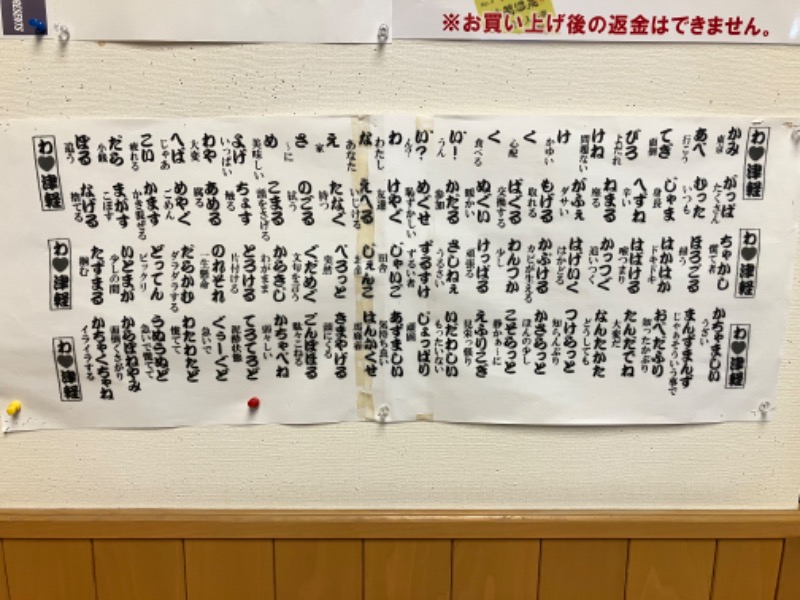 ※お買い上げ後の返金はできません。
わ♥津軽
かみ
東京
あべ
行こう
てき
面倒
びろ
よだれ
けね
問題ない
け
かゆい
く
心配
く
食べる
い!
うん
い?
ん?
わ
わたし
な
あなた
え
家
さ
～に
め
美味しい
よげ
いっぱい
わや
大変
へば
じゃあ
こい
疲れる
だら
小銭
ぼる
追う
がっぱ
たくさん
むった
いつも
じゃま
身長
へずね
辛い
ねまる
座る
がふぇ
ダサい
もげる
取れる
ばくる
交換する
ぬぐい
暖かい
かだる
参加
めぐせ
恥ずかしい
けやぐ
友達
えへる
いじける
たなぐ
持つ
のごる
拭う
こまる
頭をさげる
ちょす
触る
あめる
腐る
めやぐ
ごめん
かます
かき混ぜる
まがす
こぼす
なげる
捨てる
わ♥津軽
ちゃかし
慌て者
ほろごる
掃う
はかはか
ドキドキ
はばける
喉つまり
かっつぐ
追いつく
はげいぐ
はかどる
かぶける
カビが生える
わんつか
少し
けっぱる
頑張る
さしねぇ
うるさい
ずるすけ
ずるい者
じゃいご
田舎
じぇんこ
お金
べろっと
突然
ぐだめぐ
文句を言う
からきじ
わがまま
とろける
片付ける
のれそれ
一生懸命
だらかむ
ダラダラする
どってん
ビックリ
いとまが
少しの間
たずまる
掴む
わ♥津軽
かちゃましい
うざい
まんずまんず
じゃあそういう事で
おべだふり
知ったかぶり
たんだでね
大変だ
なんたかた
どうしても
つけらっと
知らんぷり
かさらっと
ほんの少し
こそらっと
静かぁ～に
えふりこぎ
見栄っ張り
いだわしい
もったいない
じょっぱり
頑固
あずましい
気持ち良い
はんかくせ
馬鹿者
きまやげる
頭にくる
ごんぼほる
駄々こねる
かちゃぺね
弱々しい
てろてろど
泥酔状態
ぐぅーぐど
急いで
わたわたど
慌てて
うぬうぬど
急いで慌てて
からぽねやみ
面倒くさがり
かちゃくちゃね
イライラする
わ♥津軽